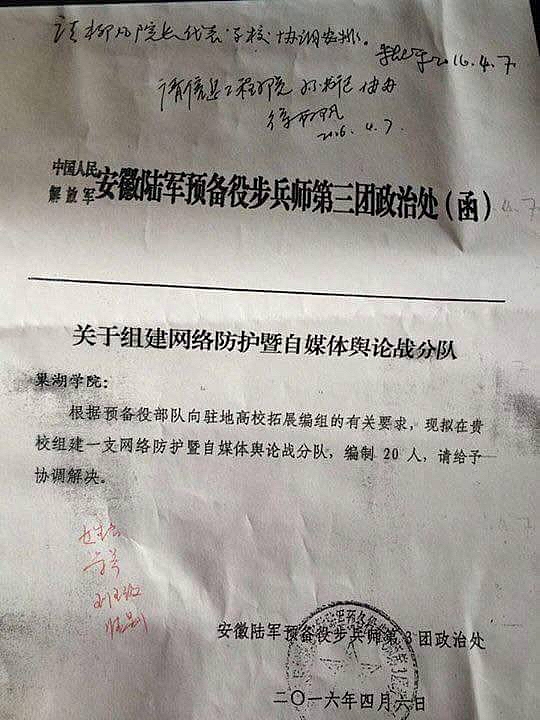 请柳凡院长代表学校协调安排。
2016.4.7
请信息工程学院 协办
2016.4.7.
中国人民解放军安徽陆军预备役步兵师第三团政治处(函)
4.7
关于组建网络防护暨自媒体舆论战分队
巢湖学院:
根据预备役部队向驻地高校拓展编组的有关要求，现拟在贵
校组建一支网络防护暨自媒体舆论战分队，编制 20 人，请给予
协调解决。
姓名
学号
性别
安徽陆军预备役步兵师第3团政治处
二〇一六年四月六日